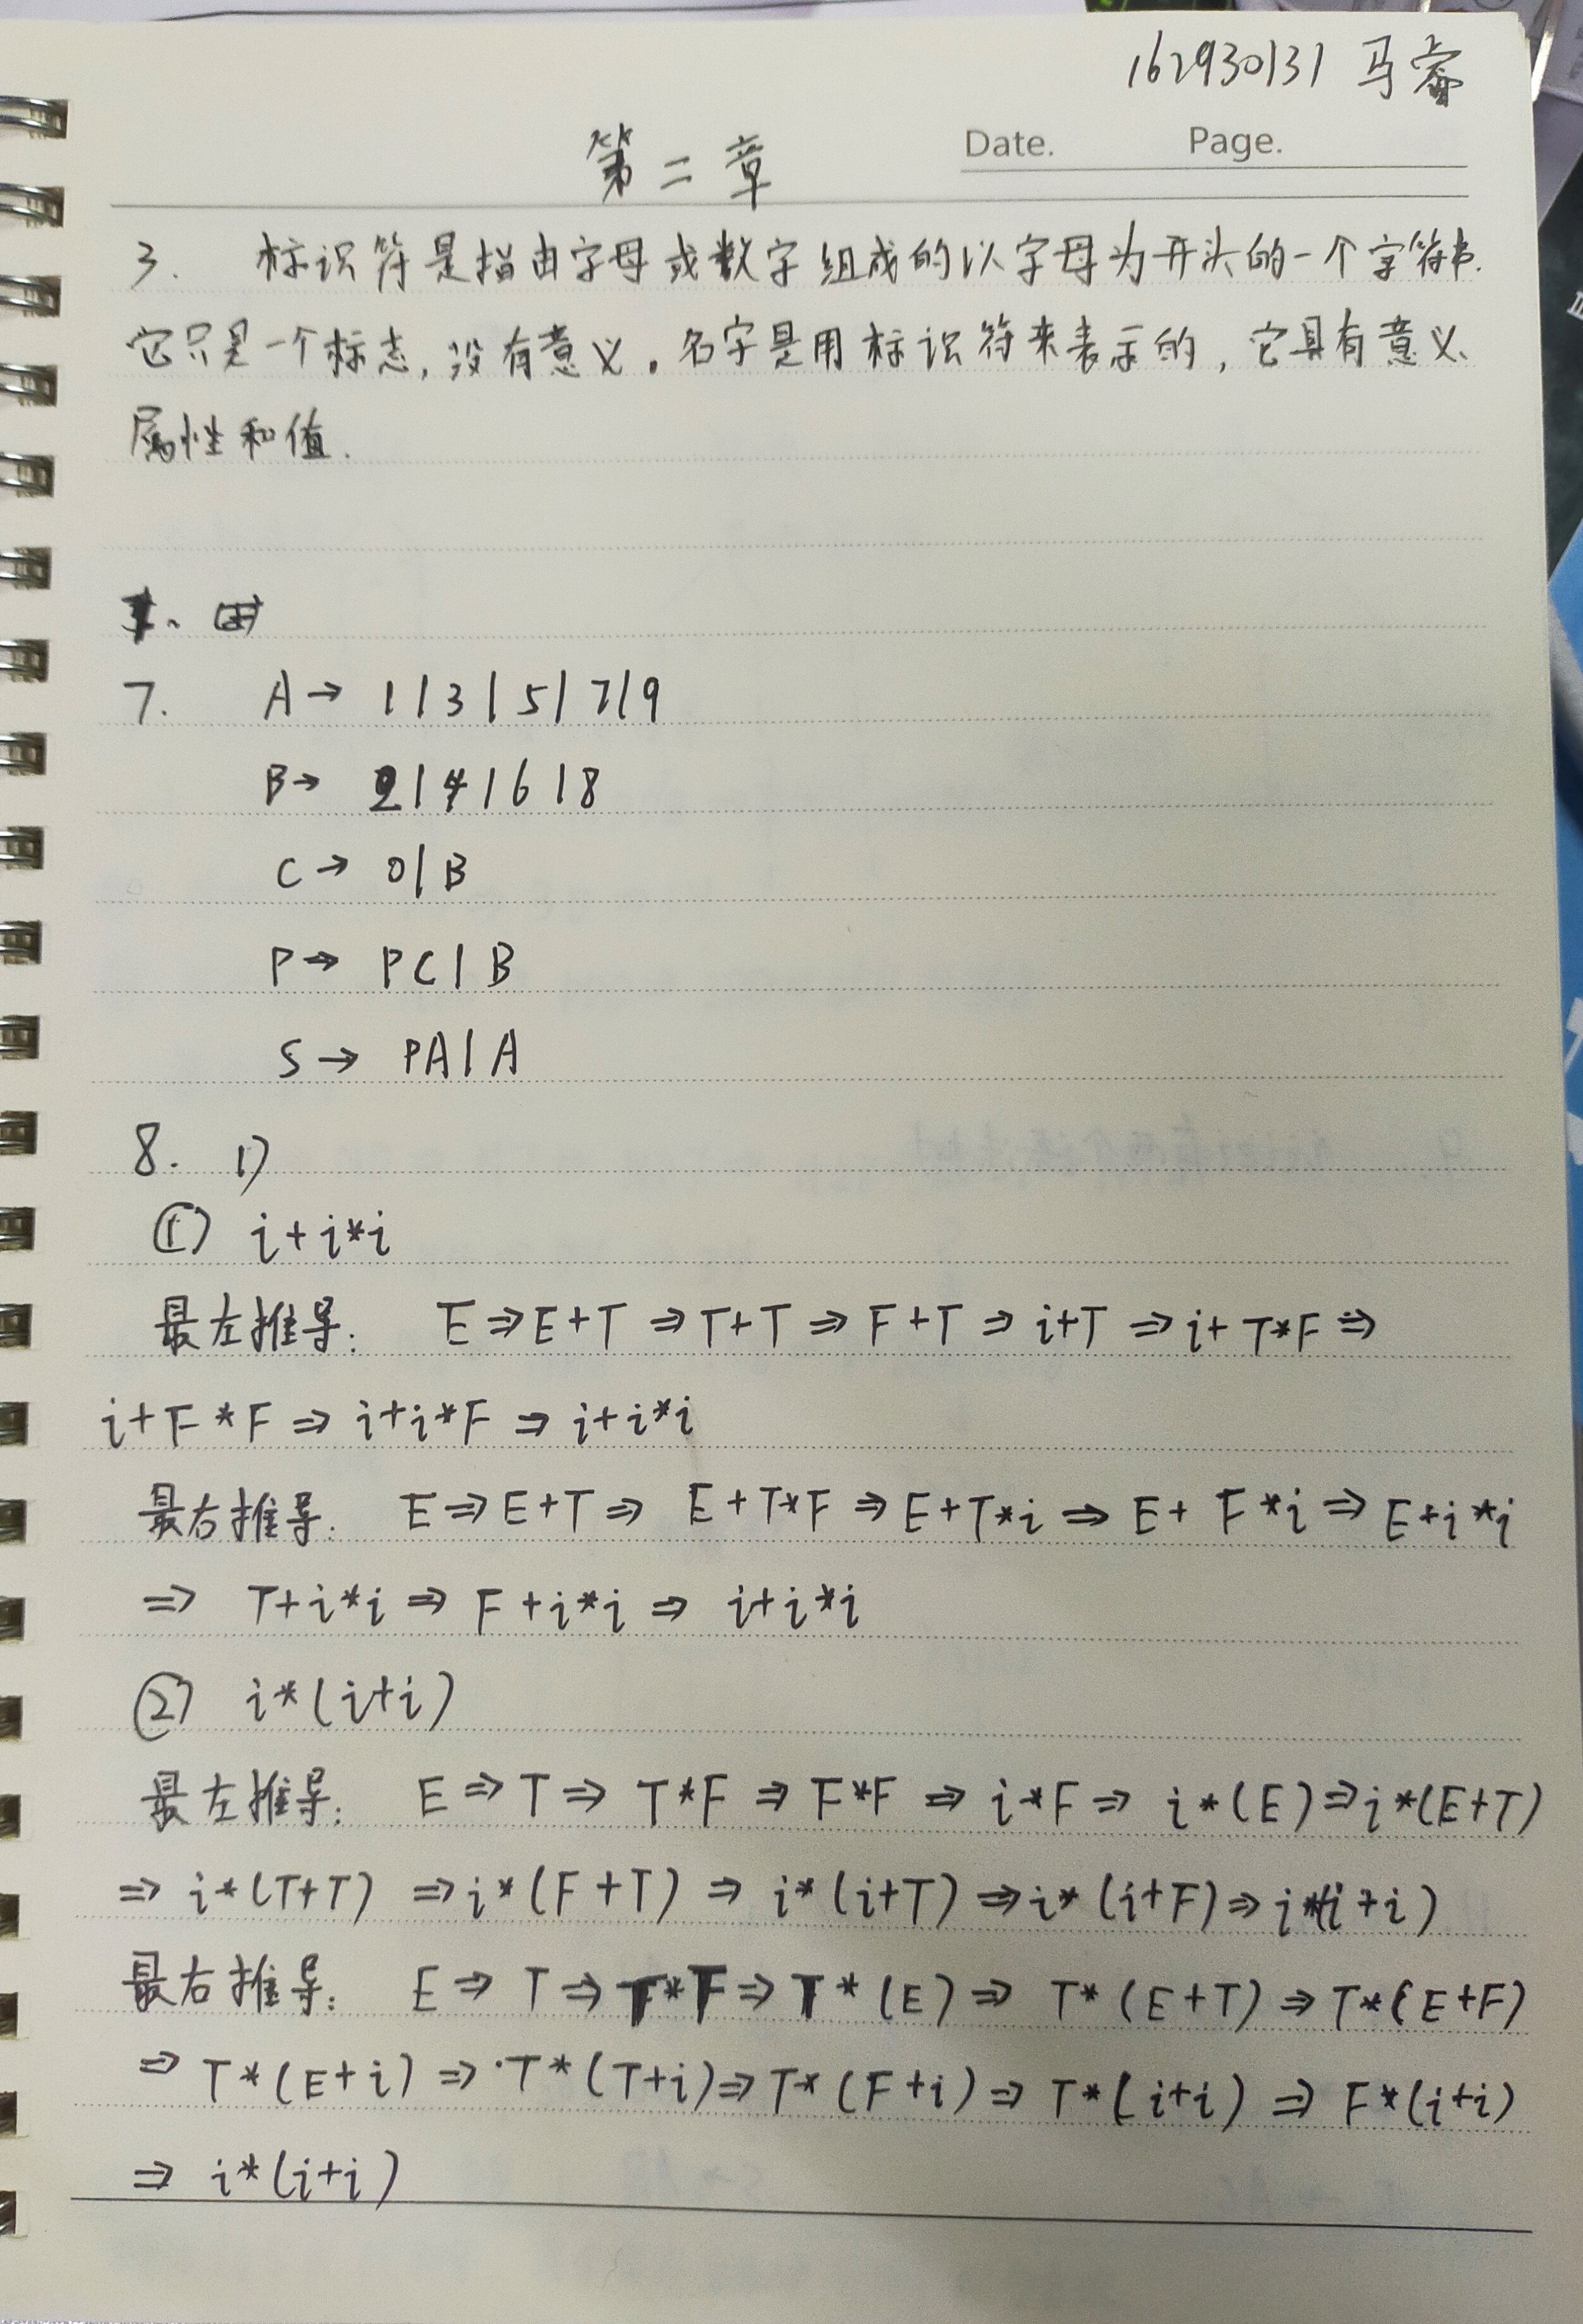 162930131 马睿
第二章
Date. Page.
3. 标识符是指由字母或数字组成的以字母为开头的一个字符串.
它只是一个标志,没有意义。名字是用标识符来表示的,它具有意义、
属性和值.
7. A→ 1|3|5|7|9
B→ 2|4|6|8
C→ 0|B
P→ PC|B
S→ PA|A
8. 1)
① i+i*i
最左推导: E⇒E+T⇒T+T⇒F+T⇒i+T⇒i+T*F⇒
i+F*F⇒i+i*F⇒i+i*i
最右推导: E⇒E+T⇒E+T*F⇒E+T*i⇒E+F*i⇒E+i*i
⇒T+i*i⇒F+i*i⇒i+i*i
② i*(i+i)
最左推导: E⇒T⇒T*F⇒F*F⇒i*F⇒i*(E)⇒i*(E+T)
⇒i*(T+T)⇒i*(F+T)⇒i*(i+T)⇒i*(i+F)⇒i*(i+i)
最右推导: E⇒T⇒T*F⇒T*(E)⇒T*(E+T)⇒T*(E+F)
⇒T*(E+i)⇒T*(T+i)⇒T*(F+i)⇒T*(i+i)⇒F*(i+i)
⇒i*(i+i)